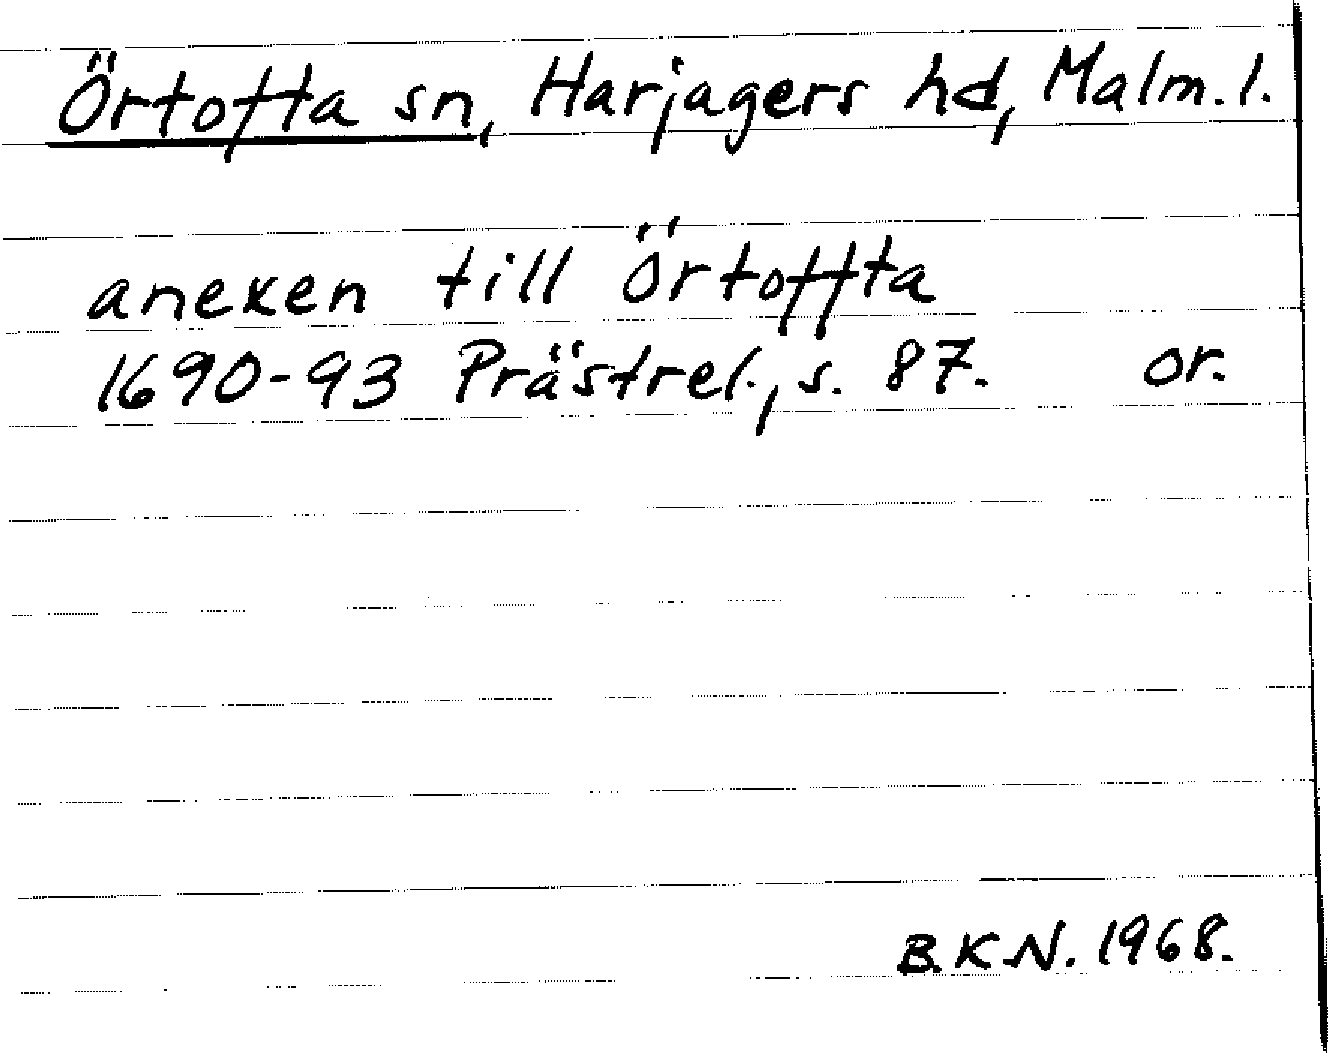 Örtofta sn, Harjagers hd, Malm. l.
anexen till Örtoffta
1690-93 Prästrel., s. 87. or.
B.K.N. 1968.